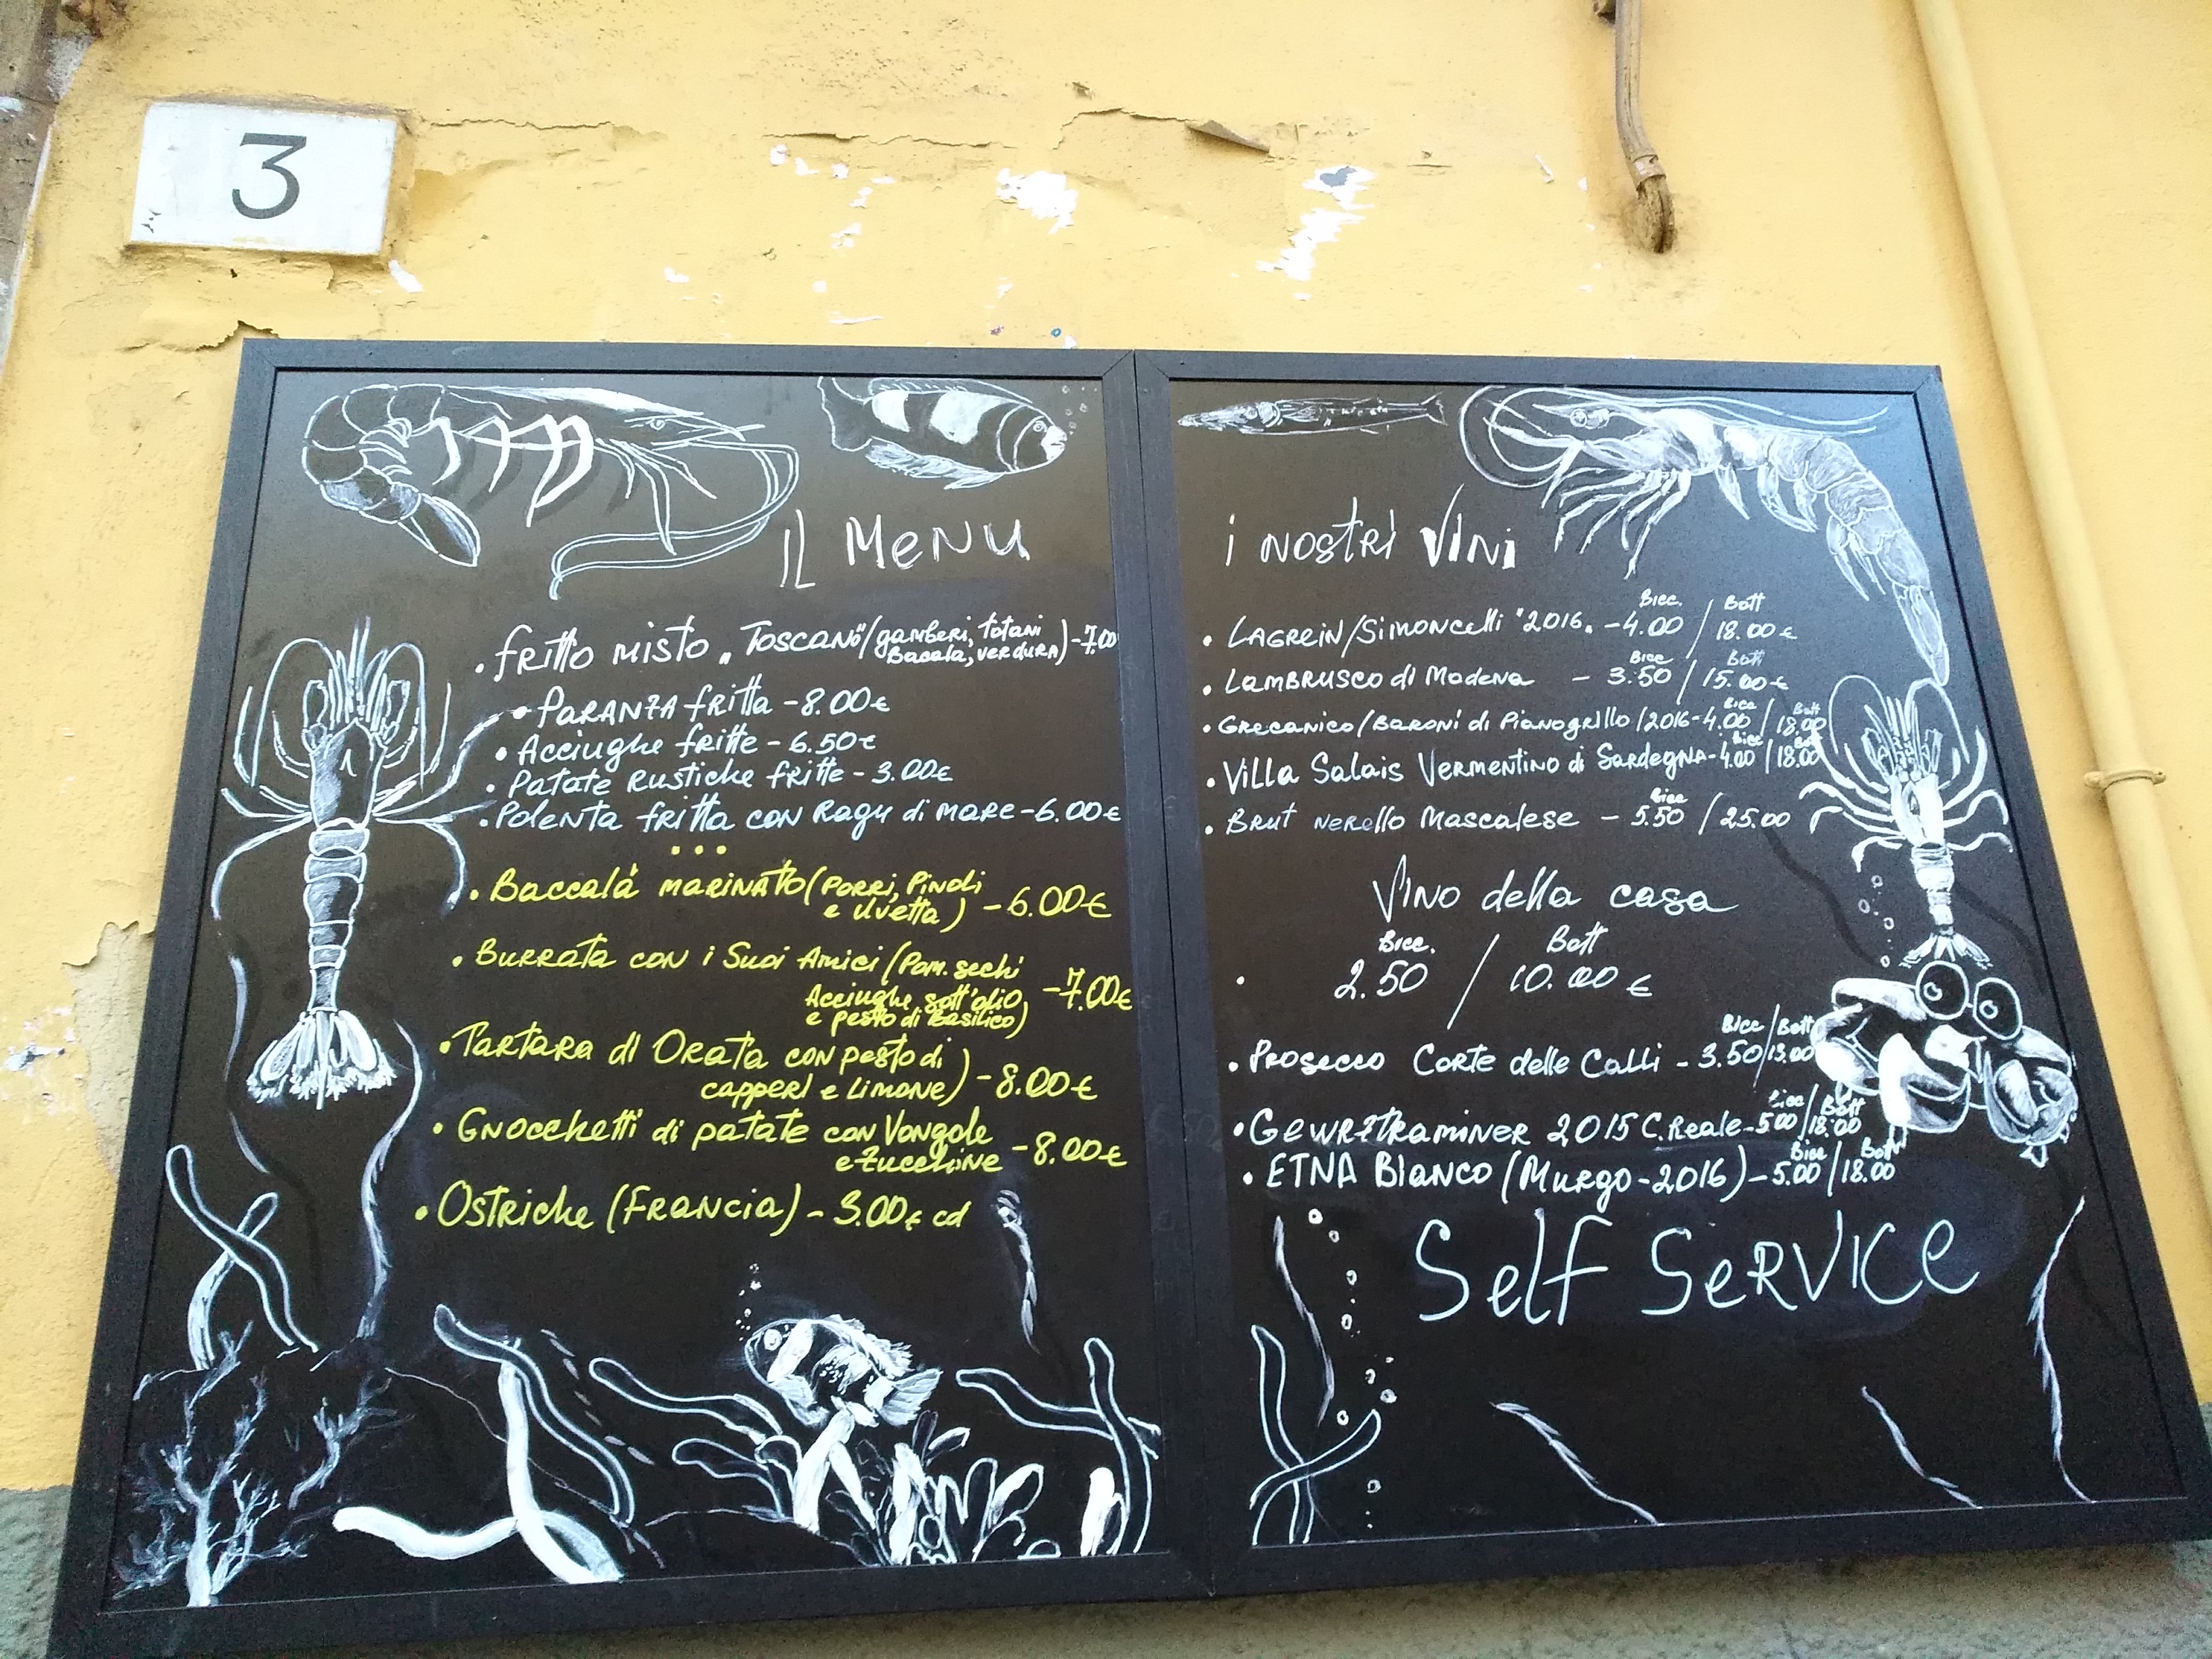 3
IL MENU
. fritto misto „Toscano"/gamberi, totani
Bacala', verdura)-7.00
• Paranza fritta - 8.00€
• Acciughe fritte - 6.50€
• Patate Rustiche fritte - 3.00€
• Polenta fritta con Ragu di mare - 6.00€
...
• Baccala' marinato (porri, Pinoli
e Uvetta) - 6.00€
• Burrata con i Suoi Amici (Pom. sechi
Acciughe sott'olio, - 7.00€
e pesto di Basilico)
• Tartara di Orata con pesto di
capperi e Limone) - 8.00€
• Gnocchetti di patate con Vongole
e Zucchine - 8.00€
• Ostriche (Francia) - 3.00€ cd
i nostri Vini
Bicc. / Bott
• Lagrein/Simoncelli "2016„ - 4.00 / 18.00€
Bicc / Bott
• Lambrusco di Modena - 3.50 / 15.00€
Bicc / Bott
• Grecanico/Baroni di Pianogrillo/2016-4.00 / 18.00
Bicc / Bott
• Villa Salais Vermentino di Sardegna-4.00 / 18.00
Bicc
• Brut nerello Mascalese - 5.50 / 25.00
Vino della casa
Bicc. / Bott
• 2.50 / 10.00 €
Bicc / Bott
• Prosecco Corte delle Calli - 3.50/15.00
Bicc / Bott
• Gewrztraminer 2015 C. Reale-5.00/18.00
Bicc / Bott
• ETNA Bianco (Murgo-2016) - 5.00/18.00
Self Service